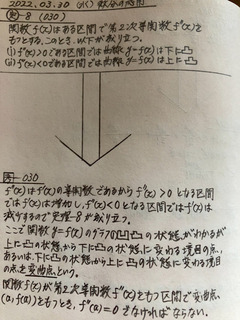 2022.03.30 (水) 微分の応用
定-8 (030)
関数f(x)はある区間で第2次導関数f''(x)を
もつとする。このとき、以下が成り立つ。
(i) f''(x)>0である区間では曲線y=f(x)は下に凸
(ii) f''(x)<0である区間では曲線y=f(x)は上に凸
-030
f''(x)はf'(x)の導関数であるからf''(x)>0となる区間
ではf'(x)は増加し、f''(x)<0となる区間ではf'(x)は
減少するので定理-8が成り立つ。
ここで関数y=f(x)のグラフの凹凸の状態がわかるが
上に凸の状態から下に凸の状態に変わる境目の点,
あるいは、下に凸の状態から上に凸の状態に変わる境目
の点を変曲点という。
関数f(x)が第2次導関数f''(x)をもつ区間で変曲点
(a,f(a))をもつとき、f''(a)=0でなければならない。